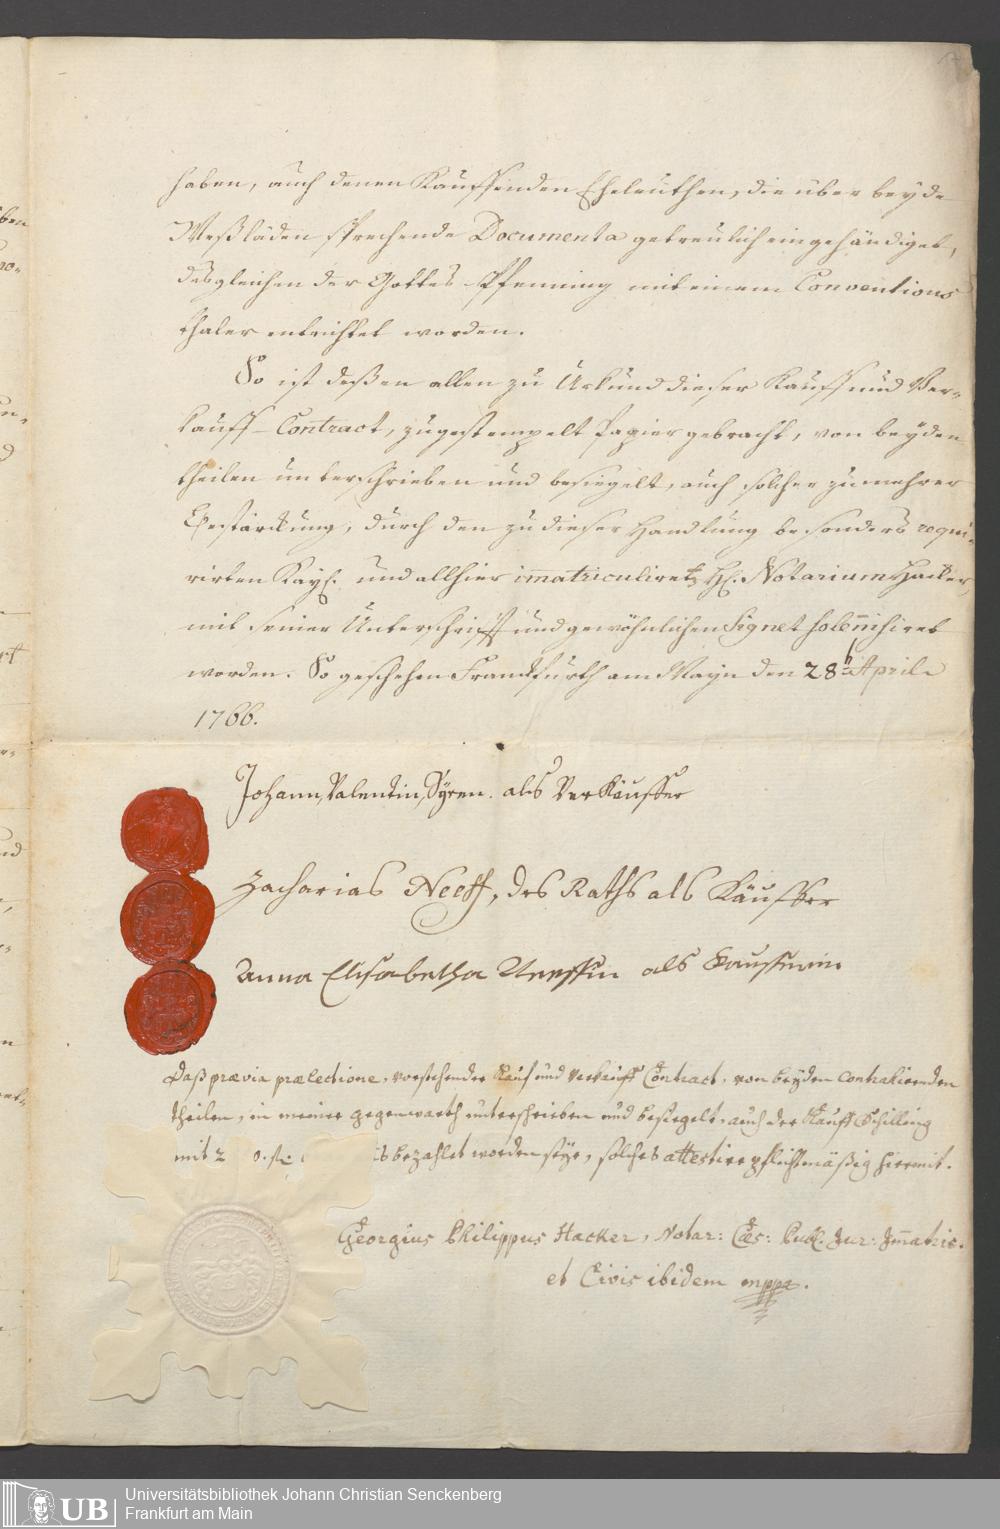 haben, auch denen Kauffenden Eheleuthen, die über beyde
Meßläden sprechende Documenta getreulich eingehändiget,
desgleichen der Gottes-Pfenning mit einem Conventions
thaler entrichtet worden.
So ist deßen allen zu Urkund dieser Kauff und Ver-
kauff-Contract, zu gestempelt Papier gebracht, von beyden
theilen unterschrieben und besiegelt, auch solcher zu mehrer
Bestärckung, durch den zu dieser Handlung besonders requi-
rirten Kays. und allhier im̅atriculirten H. Notarium Hacker,
mit seiner Unterschrifft und gewöhnlichen Signet solem̅isiret
worden. So geschehen Franckfurth am Mayn den 28. Aprile
1766.
Johann, Valentin, Syren. als Verkäuffer
Zacharias Neeff, des Raths als Käuffer
Anna Elisabetha Neeffin als Kaufferin
Daß prævia prælectione, vorstehender Kauf und Verkauff Contract, von beyden contrahirenden
theilen, in meiner gegenwarth unterschrieben und besiegelt, auch der Kauff Schilling
mit 2 0. fl: bezahlet worden seye, solches attestire pflichtmäßig hiermit.
Georgius Philippus Hacker, Notar: Cæs: Publ. Jur: Im̅atric.
et Civis ibidem mppa.
UB
Universitätsbibliothek Johann Christian Senckenberg
Frankfurt am Main